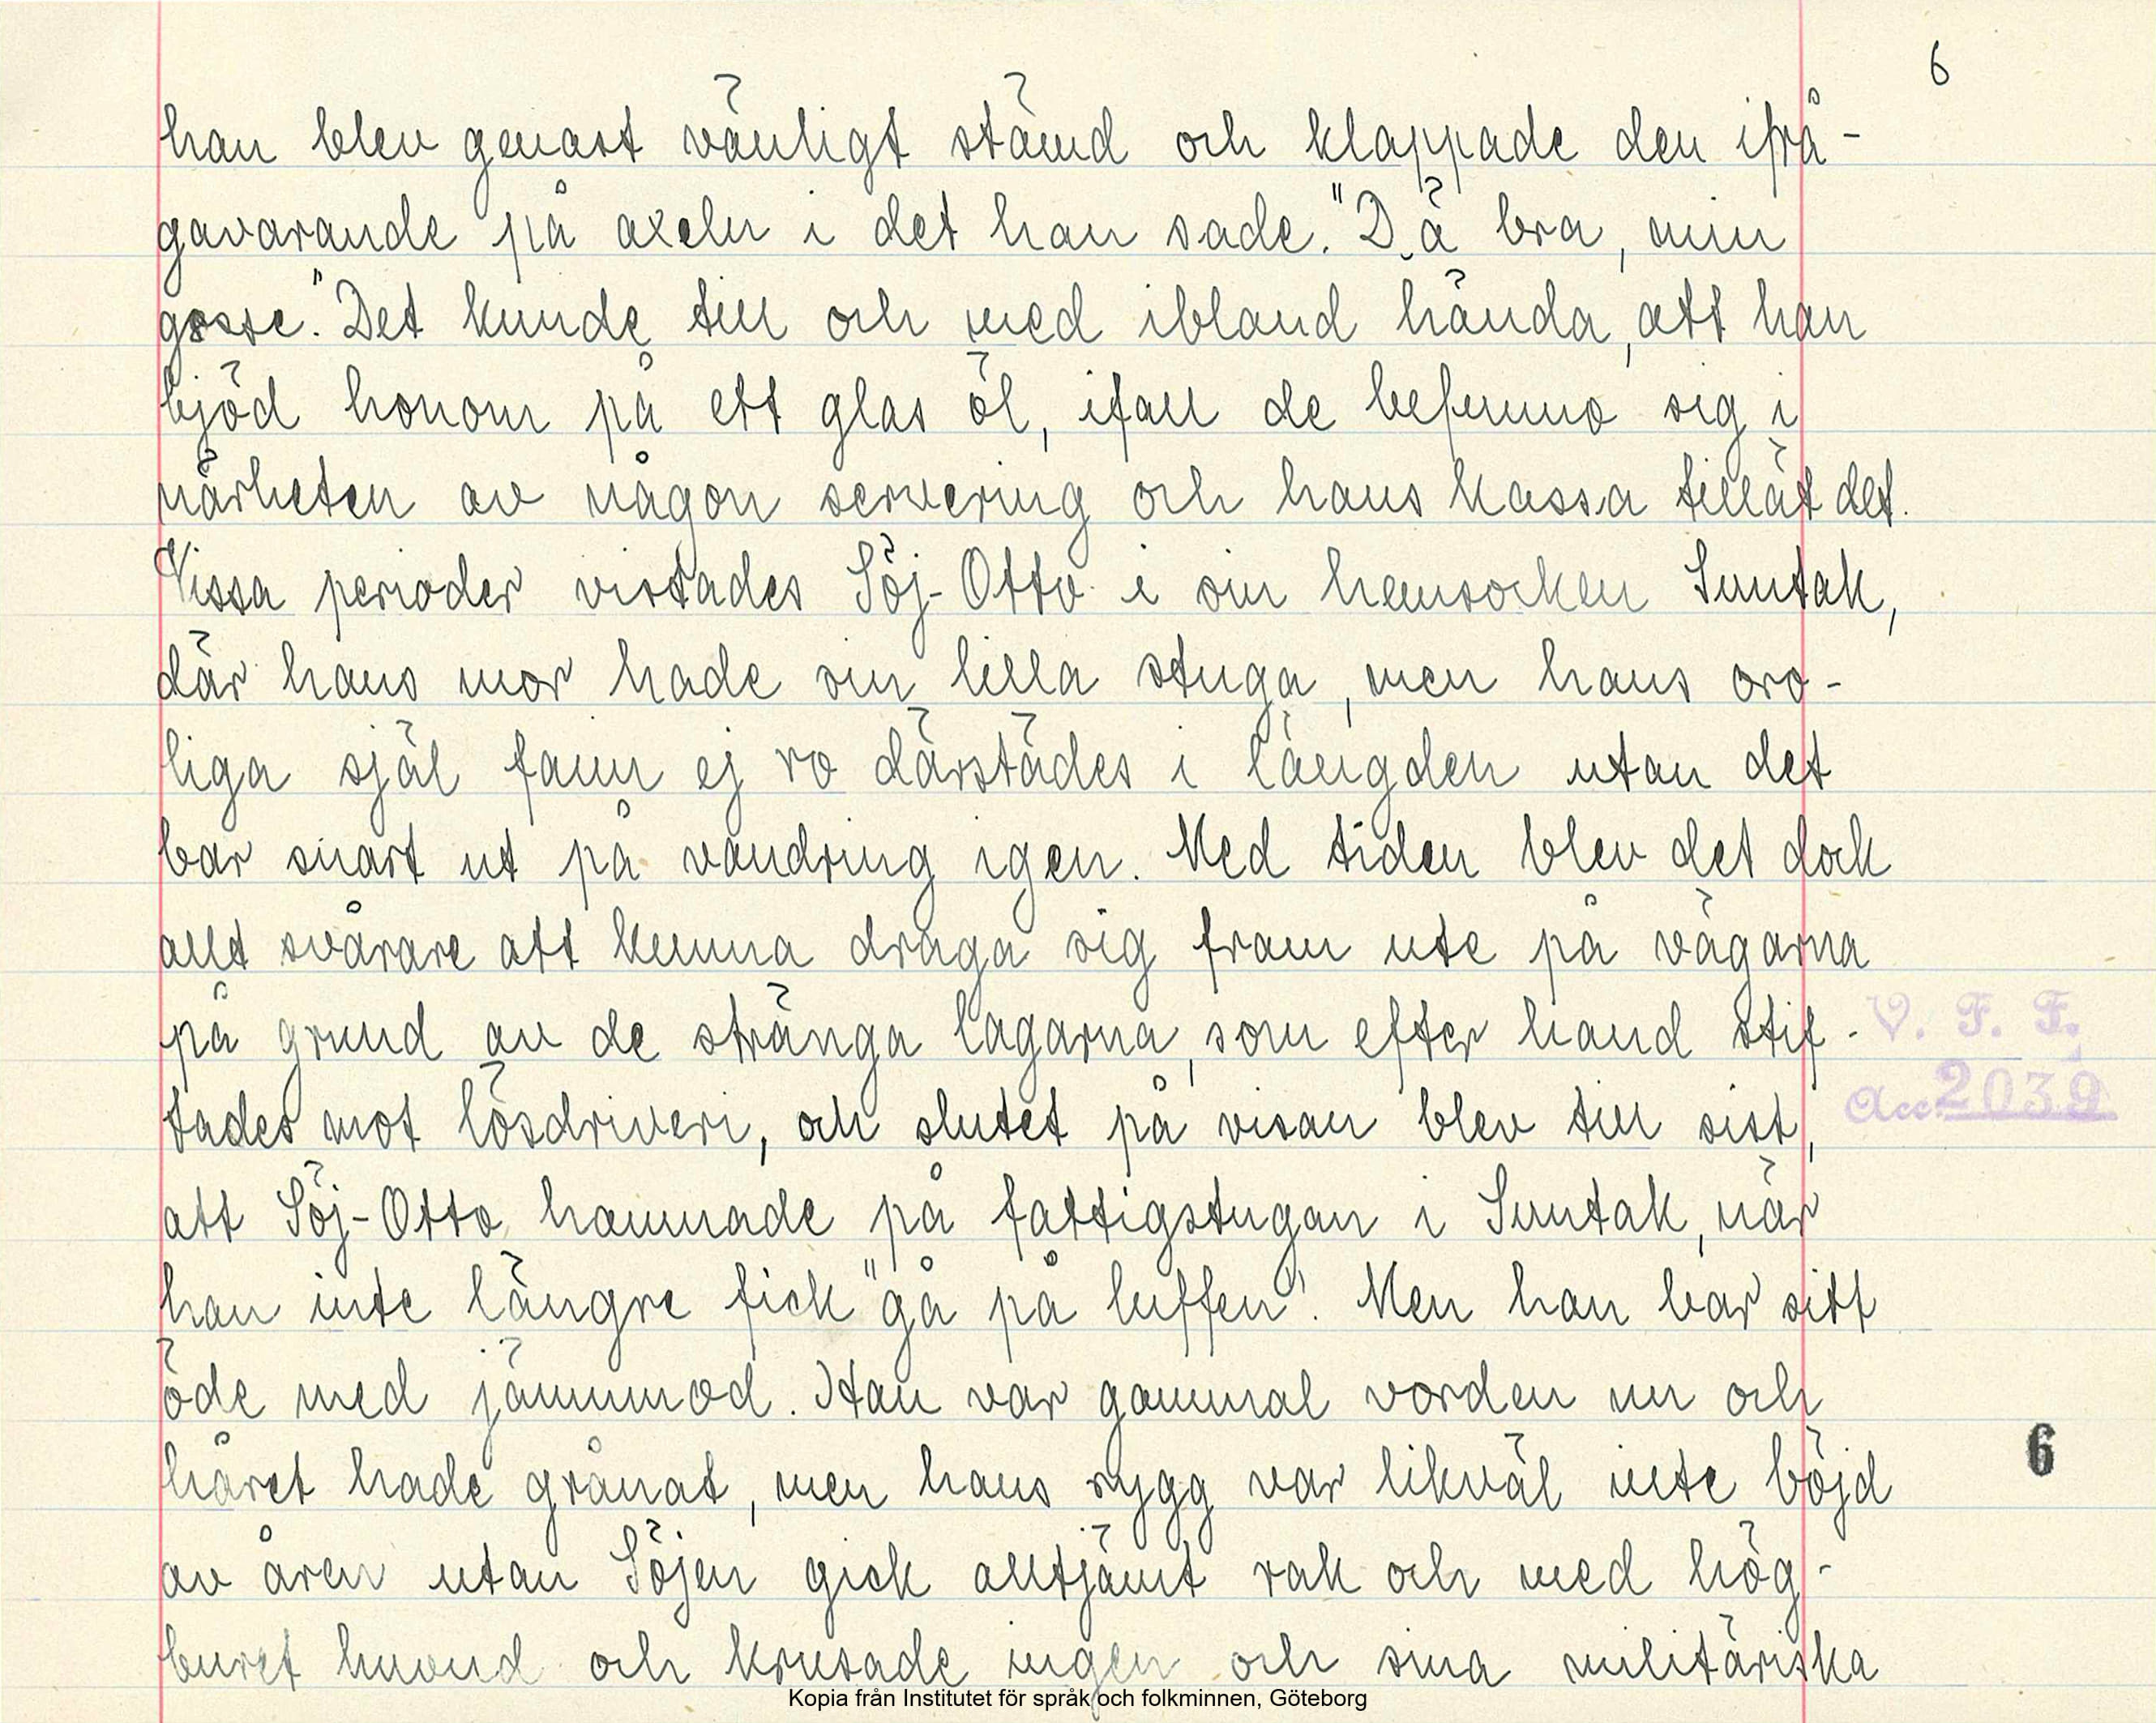 6
han blev genast vänligt stämd och klappade den ifrå-
gavarande på axeln i det han sade. "D ä bra, min
gosse." Det kunde till och med ibland hända, att han
bjöd honom på ett glas öl, ifall de befunno sig i
närheten av någon servering och hans kassa tillät det.
Vissa perioder vistades Söj-Otto i sin hemsocken Suntak,
där hans mor hade sin lilla stuga, men hans oro-
liga själ fann ej ro därstädes i längden utan det
bar snart ut på vandring igen. Med tiden blev det dock
allt svårare att kunna draga sig fram ute på vägarna
på grund av de stränga lagarna, som efter hand stif-
V. F. F.
tades mot lösdriveri, och slutet på visan blev till sist,
Acc 2039
att Söj-Otto hamnade på fattigstugan i Suntak, när
han inte längre fick "gå på luffen". Men han bar sitt
öde med jämnmod. Han var gammal vorden nu och
håret hade grånat, men hans rygg var likväl inte böjd
6
av åren utan Söjen gick alltjämt rak och med hög-
buret huvud och krusade ingen och sina militäriska
Kopia från Institutet för språk och folkminnen, Göteborg